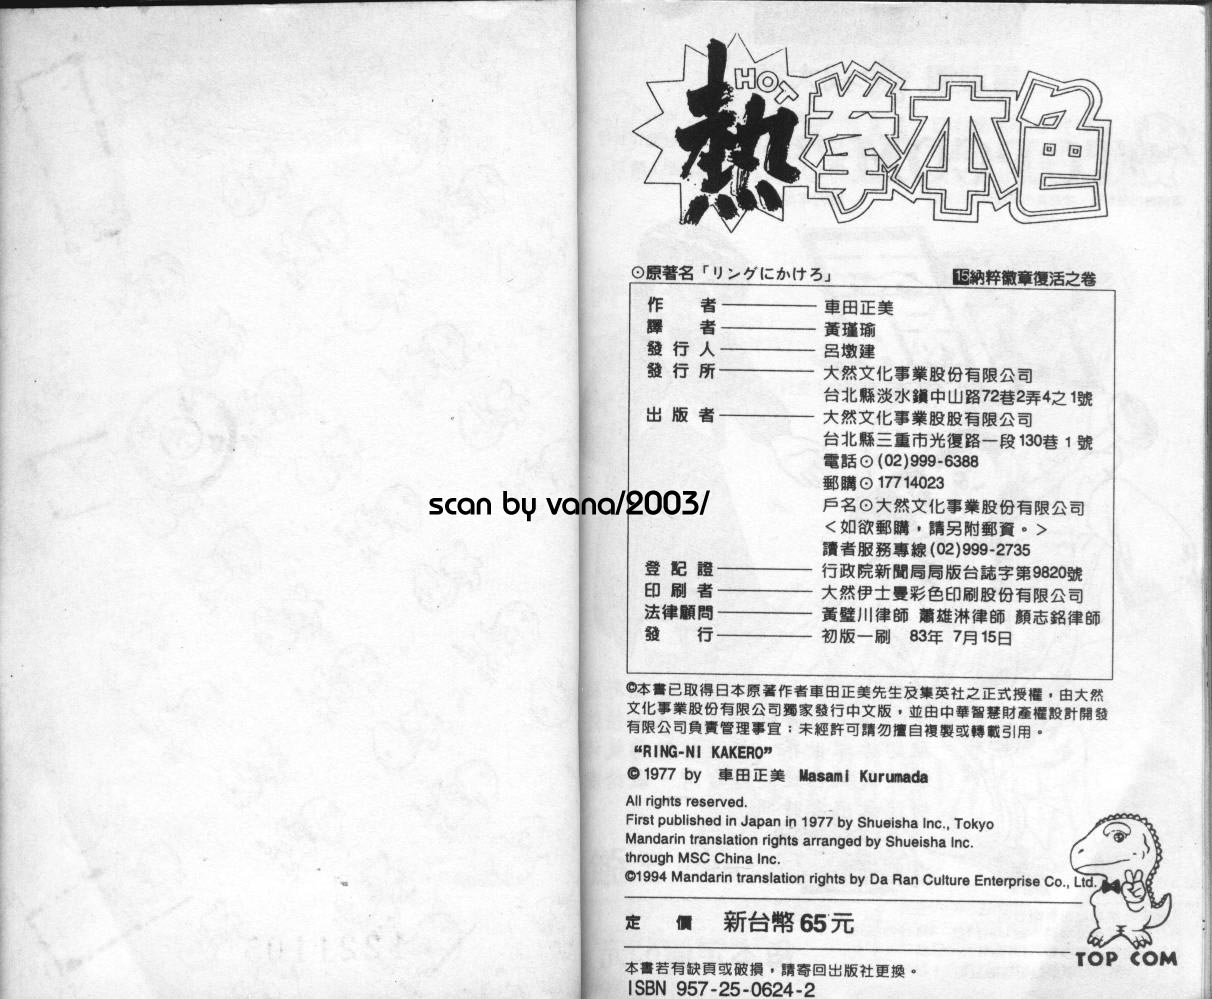 HOT
熱拳本色
⊙原著名「リングにかけろ」
15納粹徽章復活之卷
作者 車田正美
譯者 黃瑾瑜
發行人 呂墩建
發行所 大然文化事業股份有限公司
台北縣淡水鎮中山路72巷2弄4之1號
出版者 大然文化事業股股有限公司
台北縣三重市光復路一段130巷1號
電話⊙(02)999-6388
郵購⊙17714023
戶名⊙大然文化事業股份有限公司
<如欲郵購,請另附郵資。>
讀者服務專線(02)999-2735
登記證 行政院新聞局局版台誌字第9820號
印刷者 大然伊士曼彩色印刷股份有限公司
法律顧問 黃璧川律師 蕭雄淋律師 顏志銘律師
發行 初版一刷 83年7月15日
©本書已取得日本原著作者車田正美先生及集英社之正式授權,由大然
文化事業股份有限公司獨家發行中文版,並由中華智慧財產權設計開發
有限公司負責管理事宜:未經許可請勿擅自複製或轉載引用。
“RING-NI KAKERO”
©1977 by 車田正美 Masami Kurumada
All rights reserved.
First published in Japan in 1977 by Shueisha Inc., Tokyo
Mandarin translation rights arranged by Shueisha Inc.
through MSC China Inc.
©1994 Mandarin translation rights by Da Ran Culture Enterprise Co., Ltd.
定價 新台幣65元
TOP COM
本書若有缺頁或破損,請寄回出版社更換。
ISBN 957-25-0624-2
scan by vana/2003/